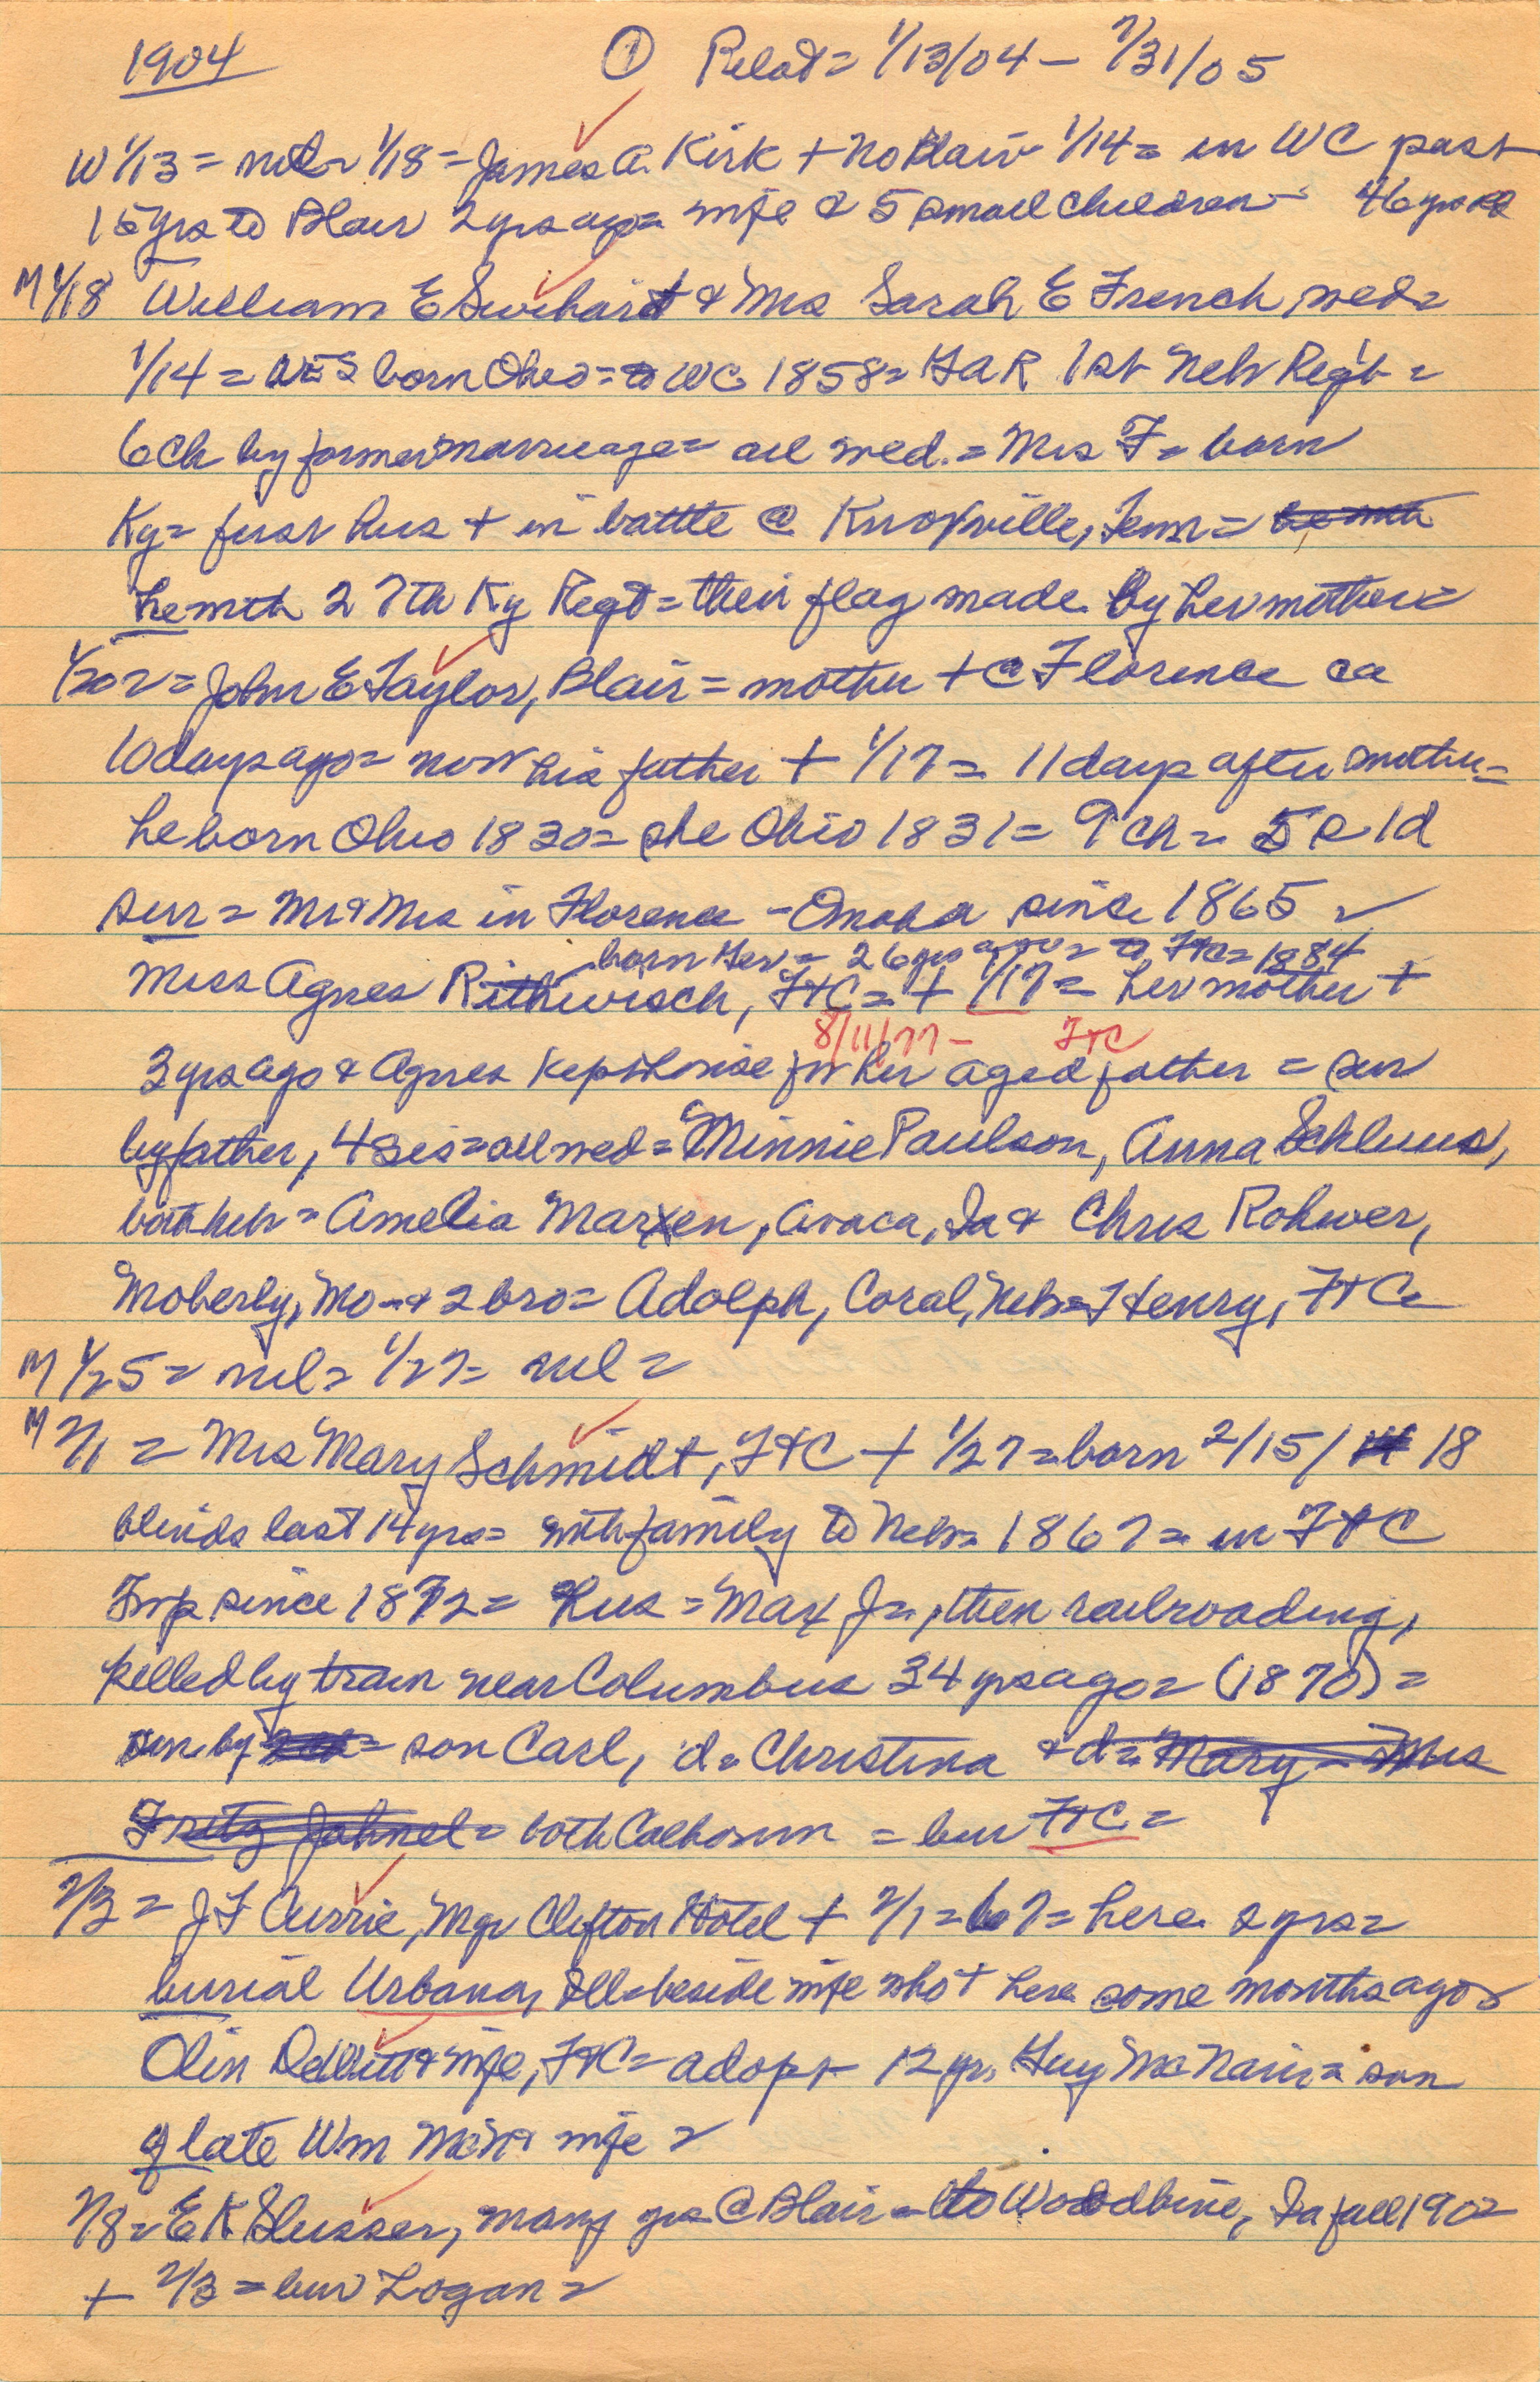 1904 ① Pilot= 1/13/04 - 7/31/05
W 1/13 = nil= 1/18 = James A. Kirk + no Blair 1/14= in WC past
15yrs to Blair 2yrs ago= wife & 5 small children= 46 yrs old
M 1/18 William E Swihart & Mrs Sarah E French wed=
1/14 = WES born Ohio= to WC 1858= GAR 1st Neb Reg't =
6 Ch by former marriage= all wed.= Mrs F= born
Ky= first hus + in battle @ Knoxville, Tenn=
he with 27th Ky Regt= their flag made by her mother=
1/20 = John E Taylor, Blair = mother + @ Florence ca
10 days ago= now his father + 1/17= 11 days after mother=
he born Ohio 1830= she Ohio 1831= 9 ch= 5 s 1d
surr = Mr & Mrs in Florence - Omaha since 1865 =
born Ger = 26 yrs ago= to FtC= 1884
Miss Agnes Rithwisch, FtC= + 1/17= her mother +
8/11/77 - FtC
3 yrs ago & Agnes kept house for her aged father = sur
by father, 4 sis= all wed= Minnie Paulson, Anna Schluns,
both Neb= Amelia Marxen, Avaca, Ia & Chris Rohwer,
Moberly, Mo- & 2 bro= Adolph, Coral, Neb= Henry, FtC=
M 1/25= nil= 1/27= nil=
M 2/1 = Mrs Mary Schmidt, FtC + 1/27= born 2/15/18
blind last 14 yrs= with family to Neb= 1867= in FtC
Twp since 1872= Hus = Max Jr., then railroading,
killed by train near Columbus 34 yrs ago= (1870)=
sur by = son Carl, d= Christina & d= Mary= Mrs
Fritz Jahnel= both Calhoun = bur FtC=
2/3 = J F Currie, Mgr Clifton Hotel + 2/1= 67= here 2 yrs=
burial Urbana, Ill= beside wife who + here some months ago=
Olin DeWitt & wife, FtC= adopt 12 yr Guy McNair= son
of late Wm McN & wife =
2/8= E K Slusser, many yrs @ Blair= to Woodbine, Ia fall 1902
+ 2/3 = bur Logan=